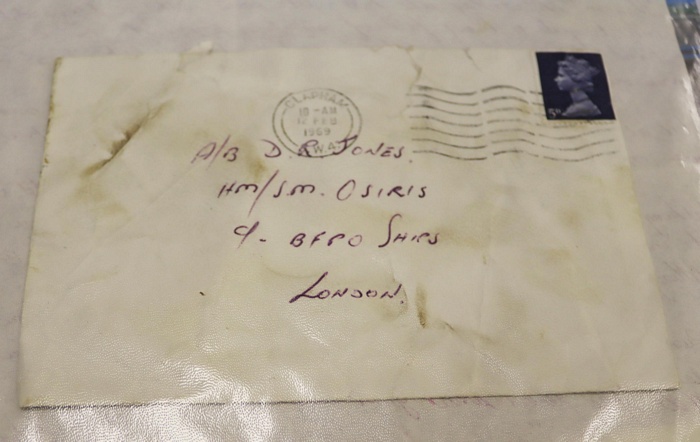 CLAPHAM
10 - AM
FEB
1969
5D
A/B D. R. JONES.
HM/S.M. OSIRIS
C/- BFPO SHIPS
LONDON.